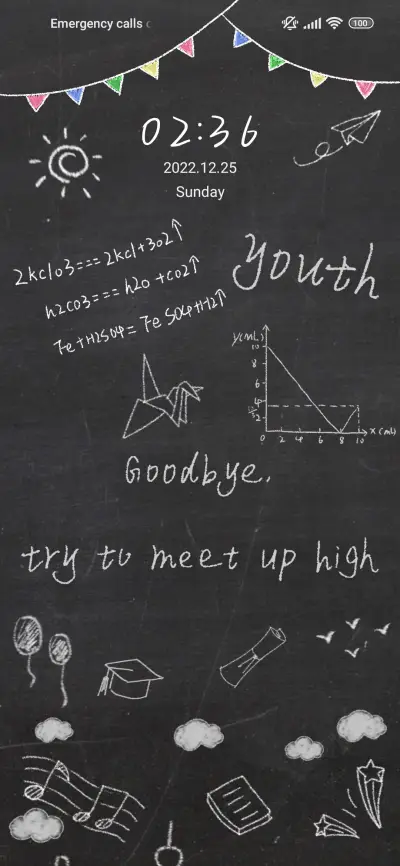 Emergency calls
100
02:36
2022.12.25
Sunday
2kclo3===2kcl+3o2↑
h2co3===h2o+co2↑
7e+H2SO4=7eSO4+H2↑
youth
y(mL)
10
8
6
4
2
0 2 4 6 8 10 x(mL)
Goodbye.
try to meet up high